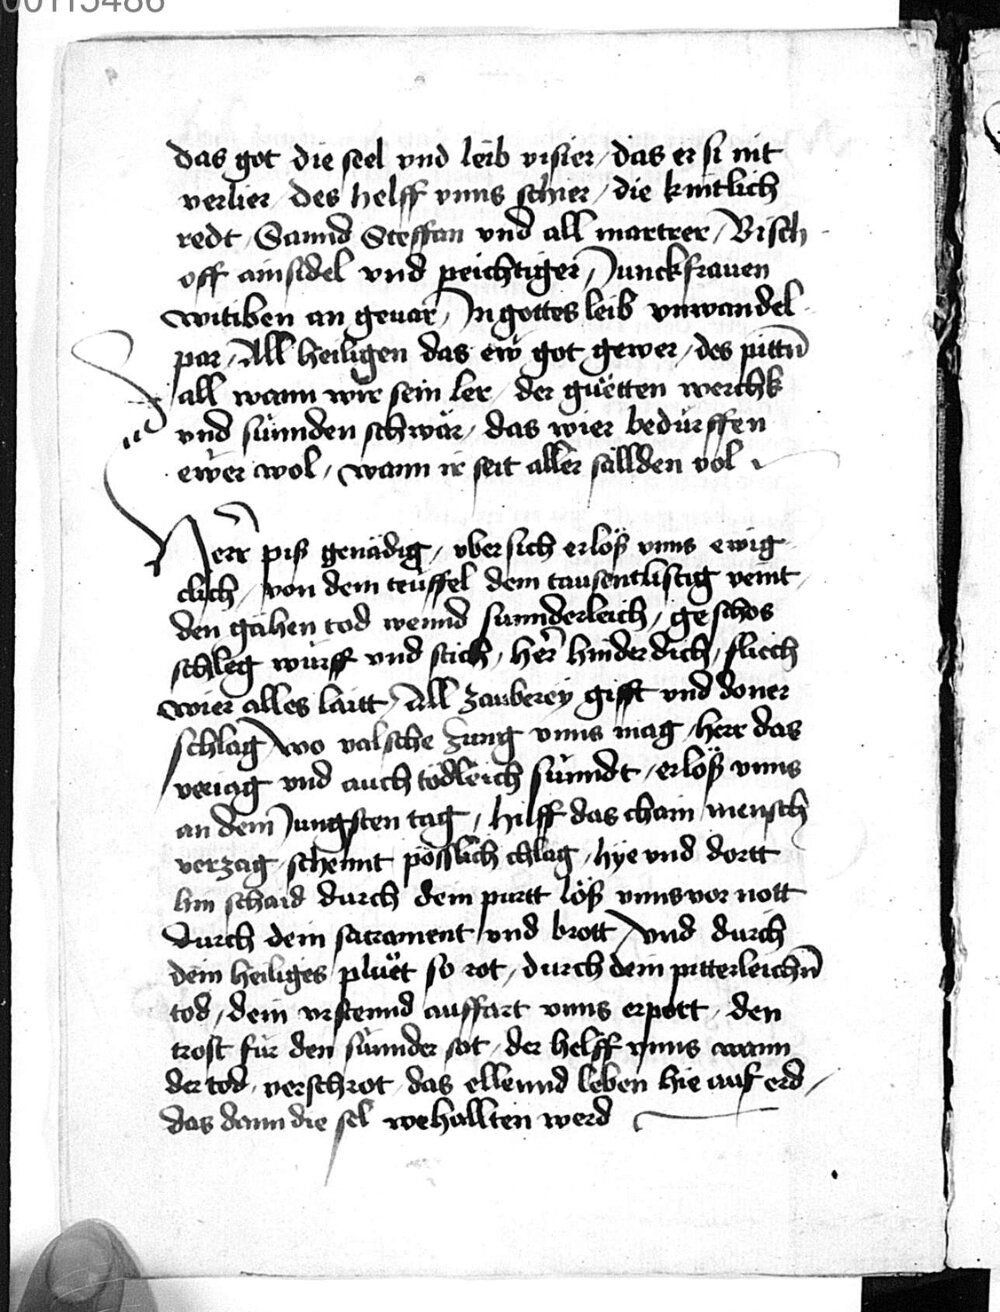 00115486
das got die seel vnd leib visier / das er si nit
verlier / des helff vnns schier / die kintlich
redt / Sannd Steffan vnd all martrer / Bisch
off ainsidel vnd peichtiger / Junckfrauen
witiben an geuar / In gottes leib vnwandel
par / All heiligen das ew̎ got gewer / des pittn̄
all wann wir sein ler / der guetten werchk
vnd sünnden schwär / das wier bedürffen
ewer wol / wann ir seit aller sällden vol
iii
Herr piß genädig / vber sich erlöß vnns ewig
clich / von dem teuffel dem tausentlistig veint
den gahen tod wennd sunnderleich / geschos
schleg würff vnd stich / her̄ hinder dich / fliech
wier alles laitt / All zauberey gifft vnd doner
schlag / wo valsche zung vnns mag / herr das
veriag vnd auch tödleich sünndt / erlöß vnns
an dem Jungsten tag / hilff das chain mensch
verzag / schennt pösslich chlag / hye vnd dortt
hin schaid durch dein purtt löß vnns vor nott
durch dein sacrament vnd brott / vnd durch
dein heiliges pluet so rot / durch dein pitterleichn̄
tod / dein vrstennd auffart vnns erpott / den
trost für den sünnder sot / der helff vnns wann
der tod / verschrot / das ellennd leben hie auf erd /
das dann die sel wehallten werd